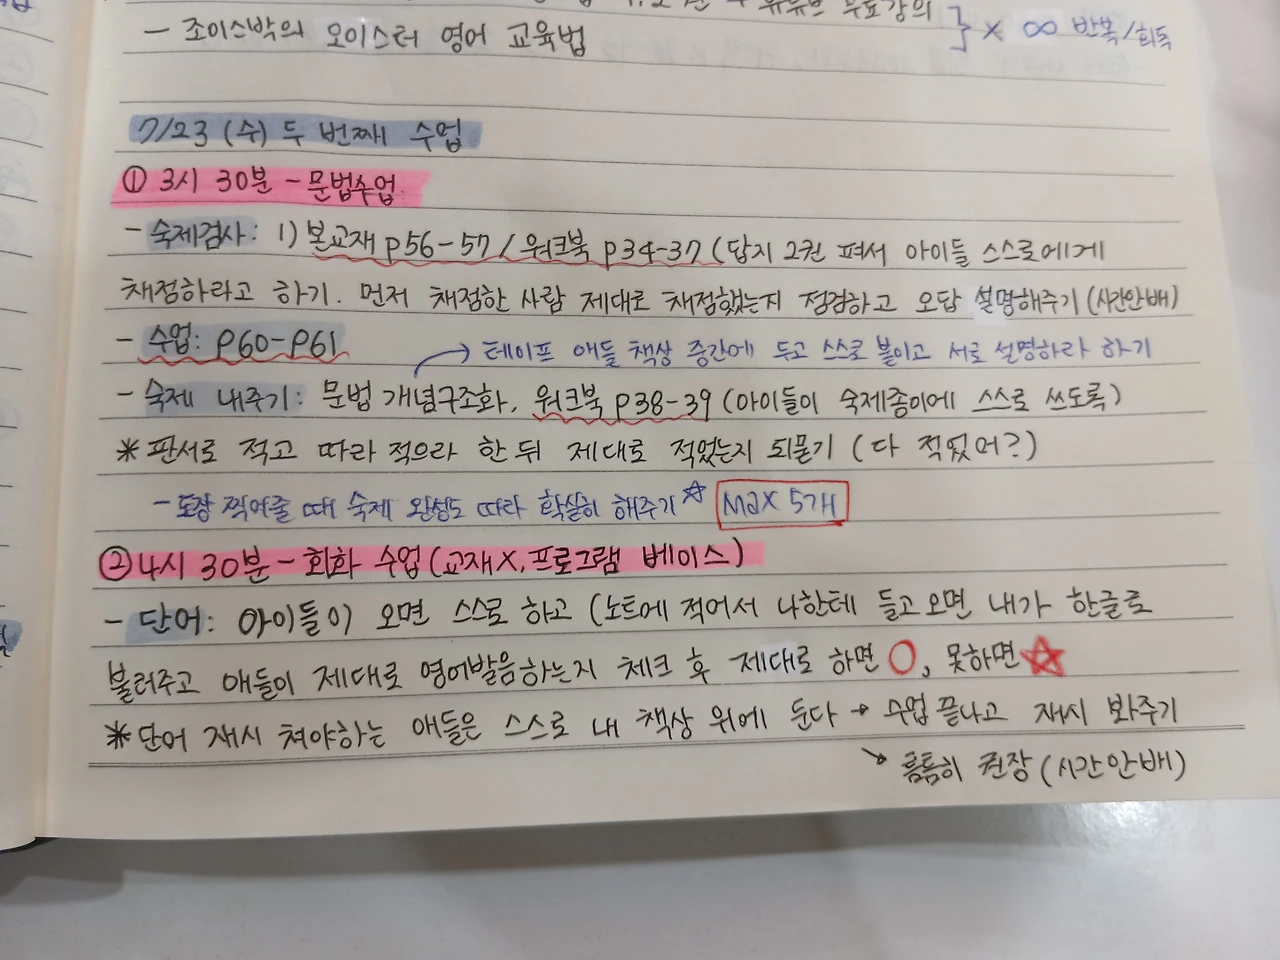 유튜브 무료강의
- 조이스박의 오이스터 영어 교육법
} × ∞ 반복/회독
7/23 (수) 두 번째 수업
① 3시 30분 - 문법수업.
- 숙제검사: 1) 본교재 p56-57 / 워크북 p34-37 (답지 2권 펴서 아이들 스스로에게
채점하라고 하기. 먼저 채점한 사람 제대로 채점했는지 점검하고 오답 설명해주기 (시간안배)
- 수업: p60-p61
→ 테이프 애들 책상 중간에 두고 스스로 붙이고 서로 설명하라 하기
- 숙제 내주기: 문법 개념구조화, 워크북 p38-39 (아이들이 숙제종이에 스스로 쓰도록)
* 판서로 적고 따라 적으라 한 뒤 제대로 적었는지 되묻기 (다 적었어?)
- 도장 찍어줄 때 숙제 완성도 따라 확실히 해주기☆ Max 5개
② 4시 30분 - 회화 수업 (교재X, 프로그램 베이스)
- 단어: 아이들이 오면 스스로 하고 (노트에 적어서 나한테 들고오면 내가 한글로
불러주고 애들이 제대로 영어발음하는지 체크 후 제대로 하면 ○, 못하면 ☆
* 단어 재시 쳐야하는 애들은 스스로 내 책상 위에 둔다 → 수업 끝나고 재시 봐주기
→ 틈틈히 권장 (시간안배)